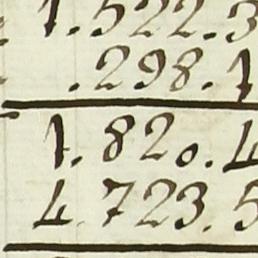 1.522.3
.298.1
1.820.4
4.723.5